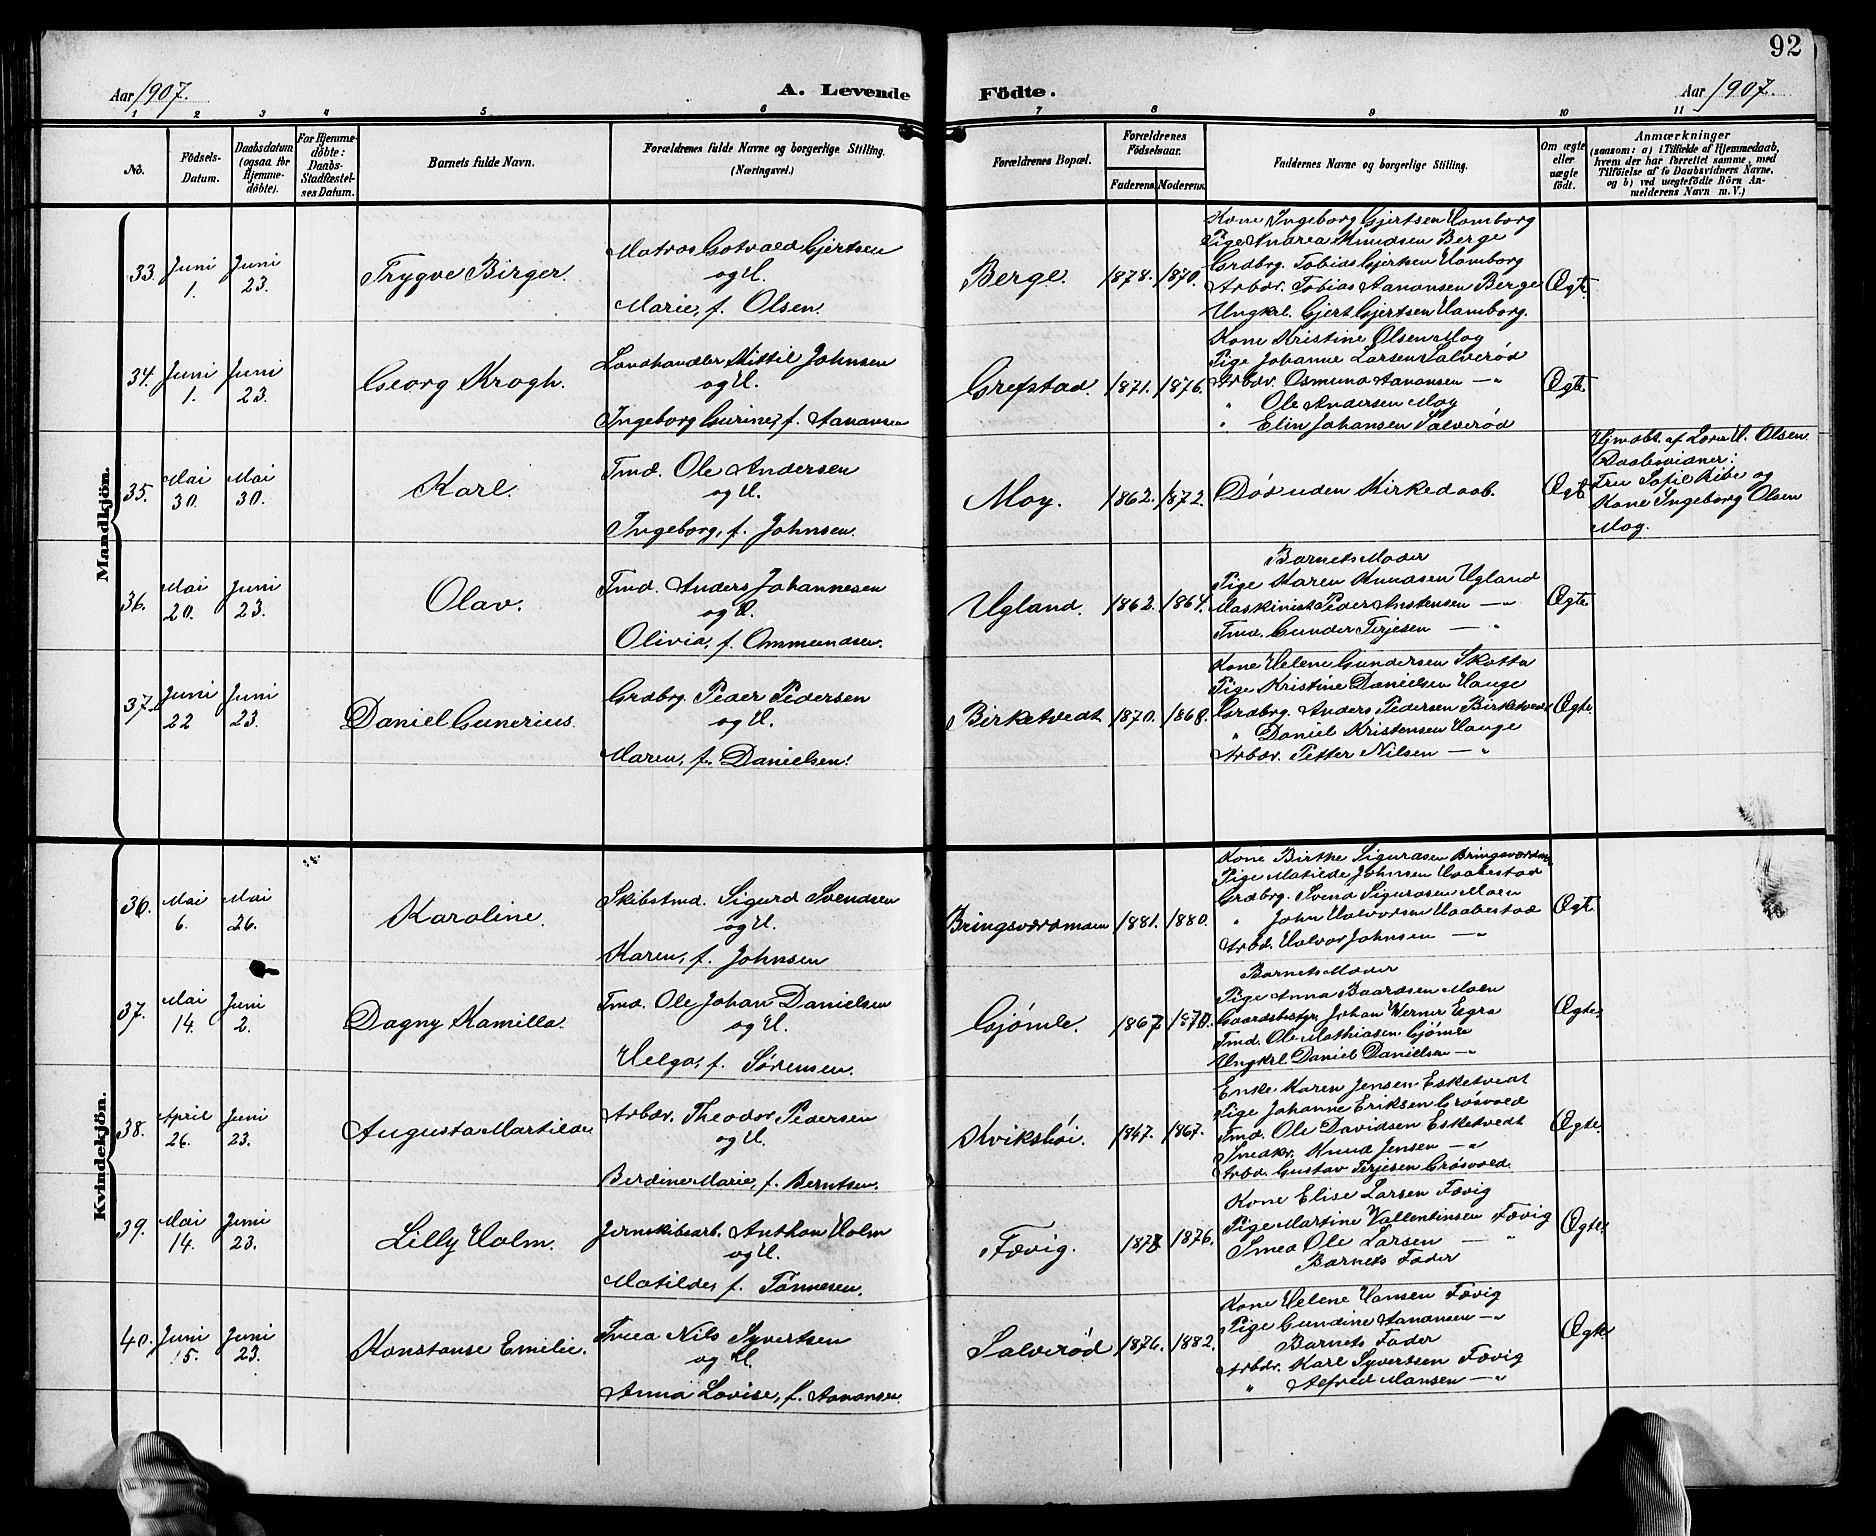 92
Aar 1907.
A. Levende Födte.
Aar 1907.
1 2 3 4 5 6 7 8 9 10 11
No.
Födsels-Datum.
Daabsdatum (ogsaa for Hjemme-döbte).
For Hjemme-döbte: Daabs-Stadfæstel-ses Datum.
Barnets fulde Navn.
Forældrenes fulde Navne og borgerlige Stilling.
(Næringsvei.)
Forældrenes Bopæl.
Forældrenes Födselsaar.
Faderens. Moderens.
Faddernes Navne og borgerlige Stilling.
Om ægte eller uægte födt.
Anmærkninger
(saasom: a) i Tilfælde af Hjemmedaab,
hvem der har forrettet samme, med
Tilföielse af to Daabsvidners Navne,
og b) ved uægtefödte Börn An-
melderens Navn m. V.)
Mandkjön.
33. Juni 1. Juni 23. Trygve Birger.
Matros Gotvald Gjertsen
og H.
Marie, f. Olsen.
Berge. 1878. 1870.
Kone Ingeborg Gjertsen Hamborg
Pige Andrea Knudsen Berge
Grdbrg. Tobias Gjertsen Hamborg
Arbdr. Tobias Aanonsen Berge
Ungkrl. Gjert Gjertsen Hamborg.
Ægte
34. Juni 1. Juni 23. Georg Krogh.
Landhandler Kittil Johnsen
og H.
Ingeborg Gurine, f. Aanonsen
Grefstad. 1871. 1876.
Kone Kristine Olsen Moy
Pige Johanne Larsen Salverød
Arbdr. Osmund Aanonsen — „
„ Ole Andersen Moy
„ Elin Johansen Salverød
Ægte
35. Mai 30. Mai 30. Karl.
Tmd. Ole Andersen
og H.
Ingeborg, f. Johnsen.
Moy. 1862. 1872.
Død uden Kirkedaab.
Ægte
Hjmdbt. af Lovise H. Olsen
Daabsvidner:
Fru Sofie Ribe og
Kone Ingeborg Olsen
Moy.
36. Mai 20. Juni 23. Olav.
Tmd. Anders Johannesen
og H.
Olivia, f. Ommundsen.
Ugland. 1862. 1864.
Barnets Moder
Pige Karen Knudsen Ugland
Maskinist Peder Anstensen — „
Tmd. Gunder Terjesen — „
Ægte
37. Juni 22 Juni 23. Daniel Gunerius.
Grdbrg. Peder Pedersen
og H.
Maren, f. Danielsen.
Birketvedt 1870. 1868.
Kone Helene Gundersen Skotta
Pige Kristine Danielsen Hauge
Grdbrg. Anders Pedersen Birketvedt
„ Daniel Kristensen Hauge
Arbdr. Petter Nilsen — „
Ægte.
Kvindekjön.
36. Mai 6. Mai 26. Karoline.
Skibstmd. Sigurd Svendsen
og H.
Karen, f. Johnsen
Bringsværdmoen 1881. 1880.
Kone Birthe Sigurdsen Bringsværdmoen
Pige Matilde Johnsen Haabestad
Grdbrg. Svend Sigurdsen Moen
„ John Halvorsen Haabestad
Arbd. Halvor Johnsen — „
Ægte
37. Mai 14. Juni 2. Dagny Kamilla.
Tmd. Ole Johan Danielsen
og H.
Helga, f. Sørensen.
Gjømle. 1867 1870.
Barnets Moder
Pige Anna Baardsen Moen
Gaardsbstyr. Johan Werner Egra
Tmd. Ole Mathiasen Gjømle
Ungkrl. Daniel Danielsen — „
Ægte.
38. April 26. Juni 23. Augusta Martilde
Arbdr. Theodor Pedersen
og H.
Berdine Marie, f. Berntsen.
Kvikshøi. 1847. 1867.
Enke Karen Jensen Esketvedt
Pige Johanne Eriksen Grøsvold
Tmd. Ole Davidsen Esketvedt
Smedkr. Knud Jensen — „
Arbd. Gustav Terjesen Grøsvold.
Ægte.
39. Mai 14. Juni 23. Lilly Holm.
Jernskibsarb. Anthon Holm
og H.
Matilde, f. Tönnesen.
Fævig. 1876.
Kone Elise Larsen Fævig
Pige Martine Vallentinsen Fævig
Smed Ole Larsen — „
Barnets Fader
Ægte.
40. Juni 15. Juni 23. Konstanse Emilie.
Nils Syvertsen
og H.
Anna Lovise, f. Aanonsen
Salverød 1876. 1882.
Kone Helene Hansen Fævig
Pige Gundine Aanonsen — „
Barnets Fader
Arbdr. Karl Syvertsen Fævig
„ Alfred Hansen — „
Ægte